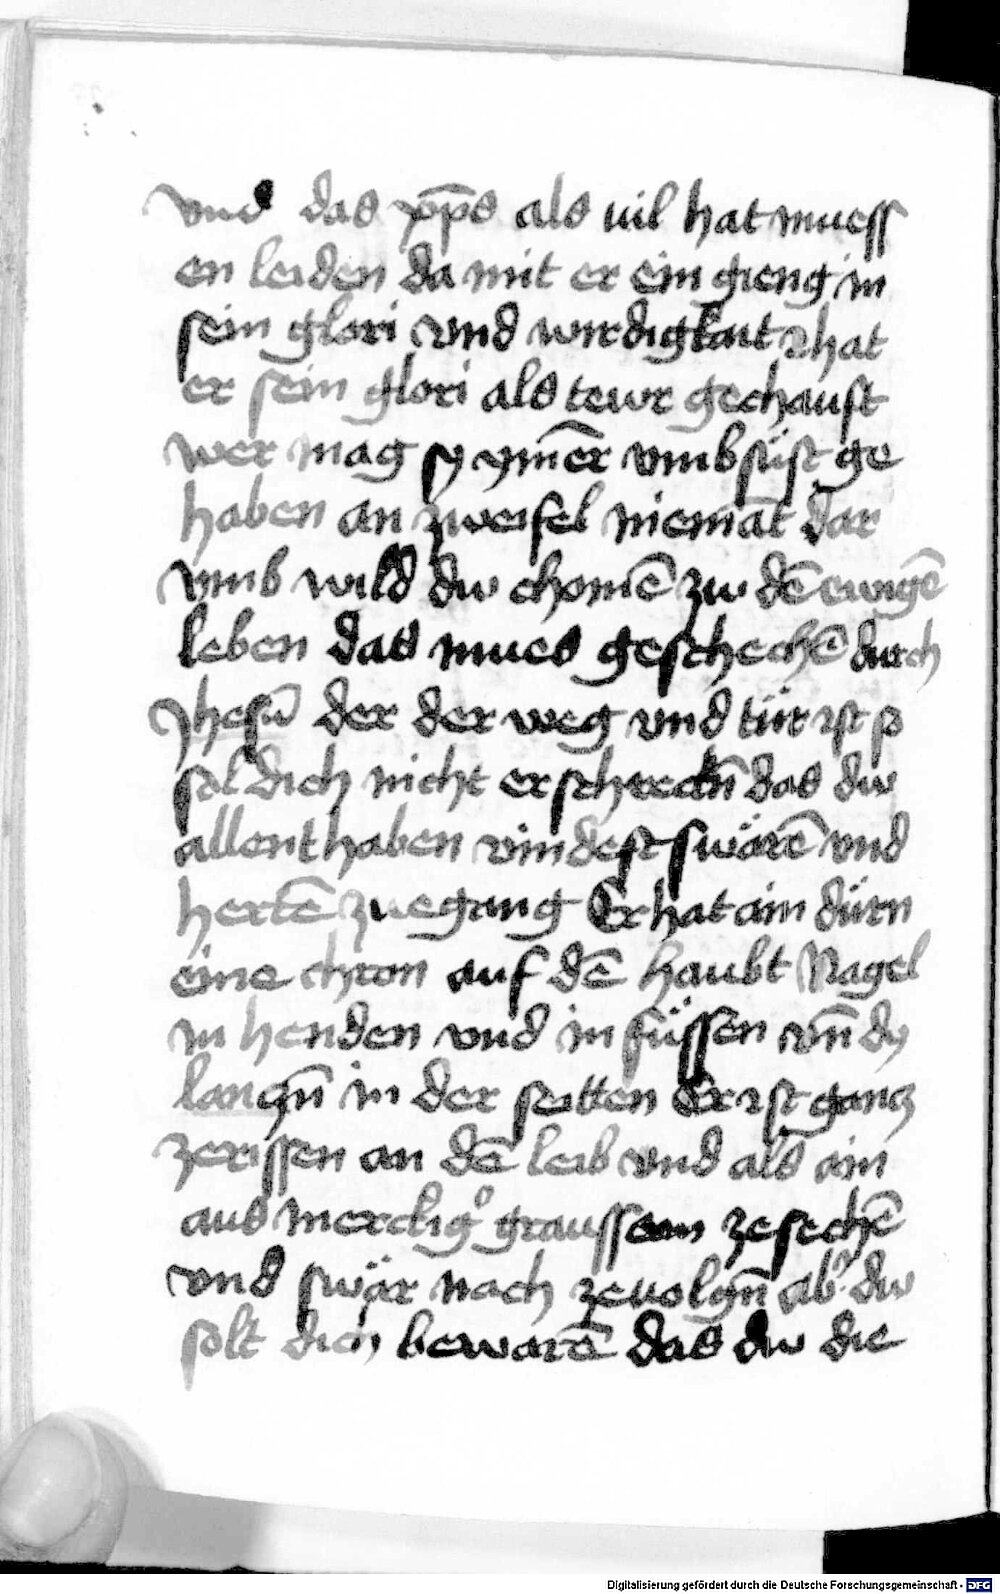 vnd das xp̄s als uil hat muess
en leiden da mit er ein gieng in
sein glori vnd wirdigkait hat
er sein glori als tewr gechauft
wer mag sy ym̄er vmb süst ge
haben an zweifel niemāt dar
vmb wild dw chomē zw dē ewigē
leben das mues geschechē durch
Jhesū der der weg vnd tür ist so
sol dich nicht erschrectn̄ das dw
allenthaben vindest swärē vnd
hertē zuegang Er hat ain dürn
eine chron auf dē haubt Nagel
in henden vnd in füssen vn̄ dy
lanczn̄ in der seitten Er ist gancz
zerissen an dē leib vnd als ain
aus merckig̉ graussam zesechē
vnd swär nach zeuolgn̄ ab̉ dw
solt dich bewarē das dw die
Digitalisierung gefördert durch die Deutsche Forschungsgemeinschaft - DFG